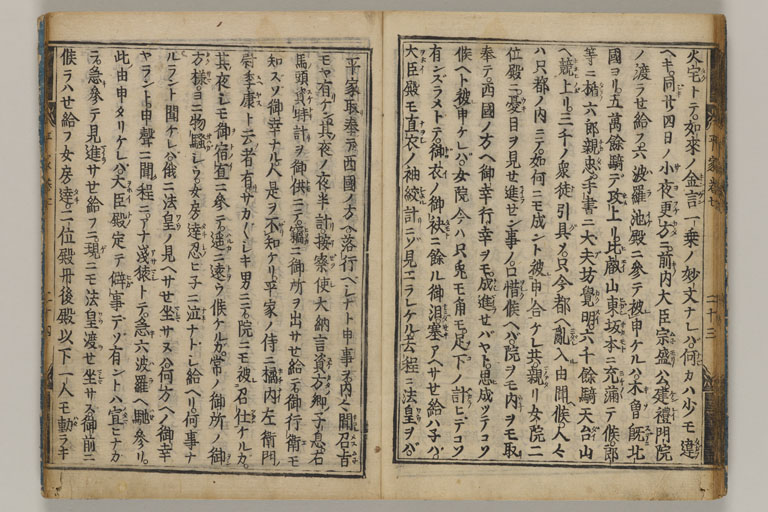 火宅トテ如來ノ金言一乗ノ妙文ナレハ何カハ少モ違
ヘキ同廿四日ノ小夜更方ニ前内大臣宗盛公建禮門院
ノ渡ラせ給フ六波羅池殿ニ參テ被申ケルハ木曽既北
國ヨリ五萬餘騎テ攻上リ比叡山東坂本ニ充滿テ候郎
等ニ楯六郎親忠手書ニ大夫坊覺明六千餘騎天台山
ヘ競上リ三千ノ衆徒引具メ只今都ヘ亂入由聞候人々
ハ只都ノ内ニテ如何ニモ成ント被申合ケレ共親リ女院二
位殿ニ憂目ヲ見せ進せン事ノ口惜候ヘハ院ヲモ内ヲモ取
奉テ西國ノ方ヘ御幸行幸ヲモ成進せハヤト思成ツテコソ
候ヘト被申ケレハ女院今ハ只兎モ角モ足下ノ計ヒテコソ
有ンスラメトテ御衣ノ御袂ニ餘ル御泪塞アヘサせ給ハ子ハ
大臣殿モ直衣ノ袖絞計ニソ見エラレケル去程ニ法皇ヲハ
平家取奉テ西國ノ方ヘ落行ヘシナト申事ヲ内々聞召旨
モヤ有ケン其夜ノ夜半計按察使大納言資方卿子息右
馬頭資時計ヲ御供ニテ竊ニ御所ヲ出サせ給テ御行衛モ
知スソ御幸ナル人是ヲ不知ケリ平家ノ侍ニ橘内左衛門
尉季康ト云者有サカ〳〵シキ男ニテ院ニモ被召仕ケルカ
其夜シモ御宿直ニ參テ遥ニ遠ウ候ケルカ常ノ御所ノ御
方様ヨニ物騒シウ女房達忍ヒ子ニ泣ナトシ給ヘリ何事ナ
ルラント聞ケレハ俄ニ法皇ノ見ヘサせ坐サス何方ヘノ御幸
ヤラント申聲ニ聞程ニアナ浅猿トテ急六波羅ヘ馳參リ
此由申タリケレハ大臣殿定テ僻事テソ有ントハ宣ヒナカ
ラ急參テ見進サせ給フニ現ニモ法皇渡せ坐サス御前ニ
候ラハせ給フ女房達二位殿丹後殿以下一人モ動ラキ